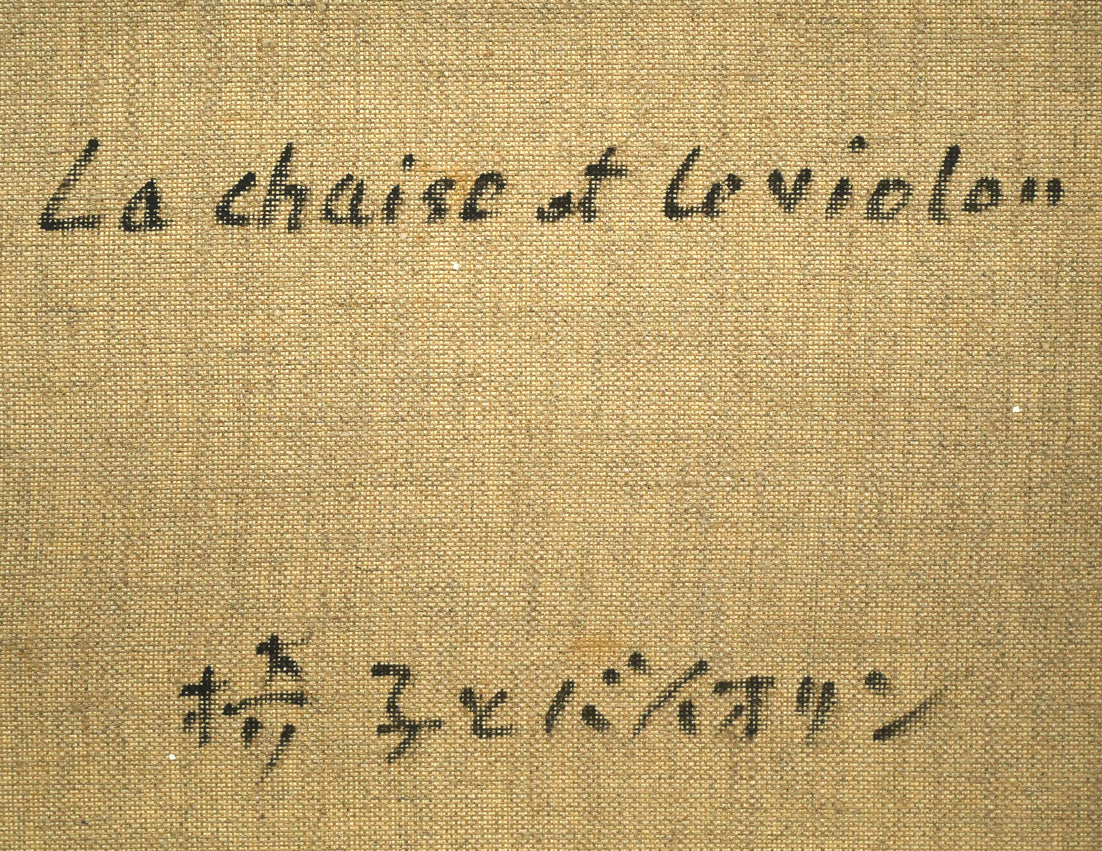 La chaise et le violon
椅子とバイオリン